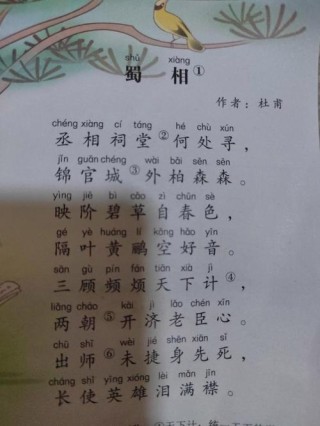 shǔ xiàng
蜀 相①
作者：杜甫
chéng xiàng cí táng hé chù xún
丞相祠堂②何处寻，
jǐn guān chéng wài bǎi sēn sēn
锦官城③外柏森森。
yìng jiē bì cǎo zì chūn sè
映阶碧草自春色，
gé yè huáng lí kōng hǎo yīn
隔叶黄鹂空好音。
sān gù pín fán tiān xià jì
三顾频烦天下计④，
liǎng cháo kāi jì lǎo chén xīn
两朝⑤开济老臣心。
chū shī wèi jié shēn xiān sǐ
出师⑥未捷身先死，
cháng shǐ yīng xióng lèi mǎn jīn
长使英雄泪满襟。
天下计：统一